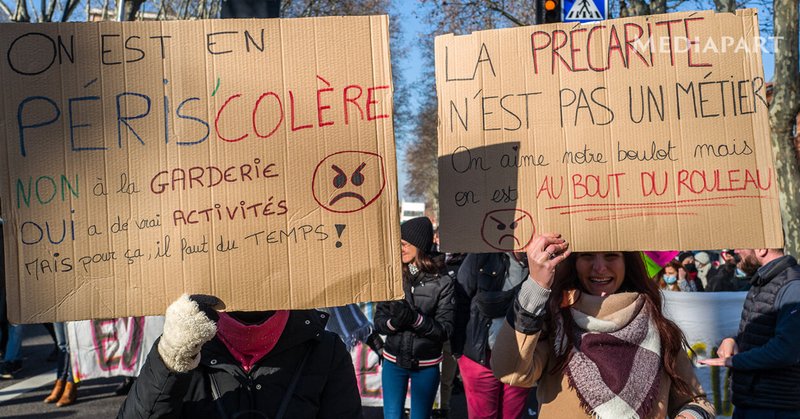 ON EST EN
PÉRIS'COLÈRE
NON à la GARDERIE
OUI a de vrai ACTIVITÉS
MAIS pour ça, il faut du TEMPS!
LA PRÉCARITÉ
N'EST PAS UN MÉTIER
On aime notre boulot mais
on est AU BOUT DU ROULEAU
MEDIAPART